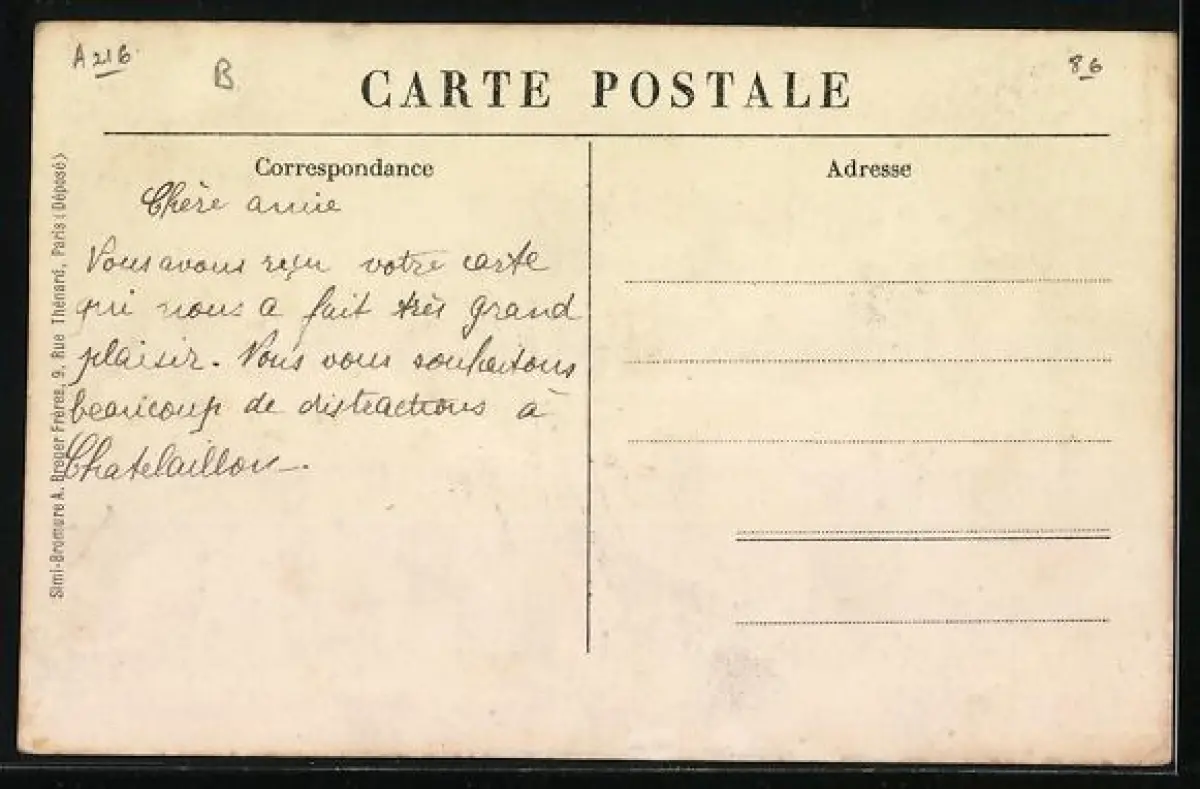 A 216
B
86
CARTE POSTALE
Correspondance
Adresse
Chère amie
Nous avons reçu votre carte
qui nous a fait très grand
plaisir. Nous vous souhaitons
beaucoup de distractions à
Chatelaillon.
Simi-Bromure A. Breger Frères, 9, Rue Thénard, Paris (Déposé)